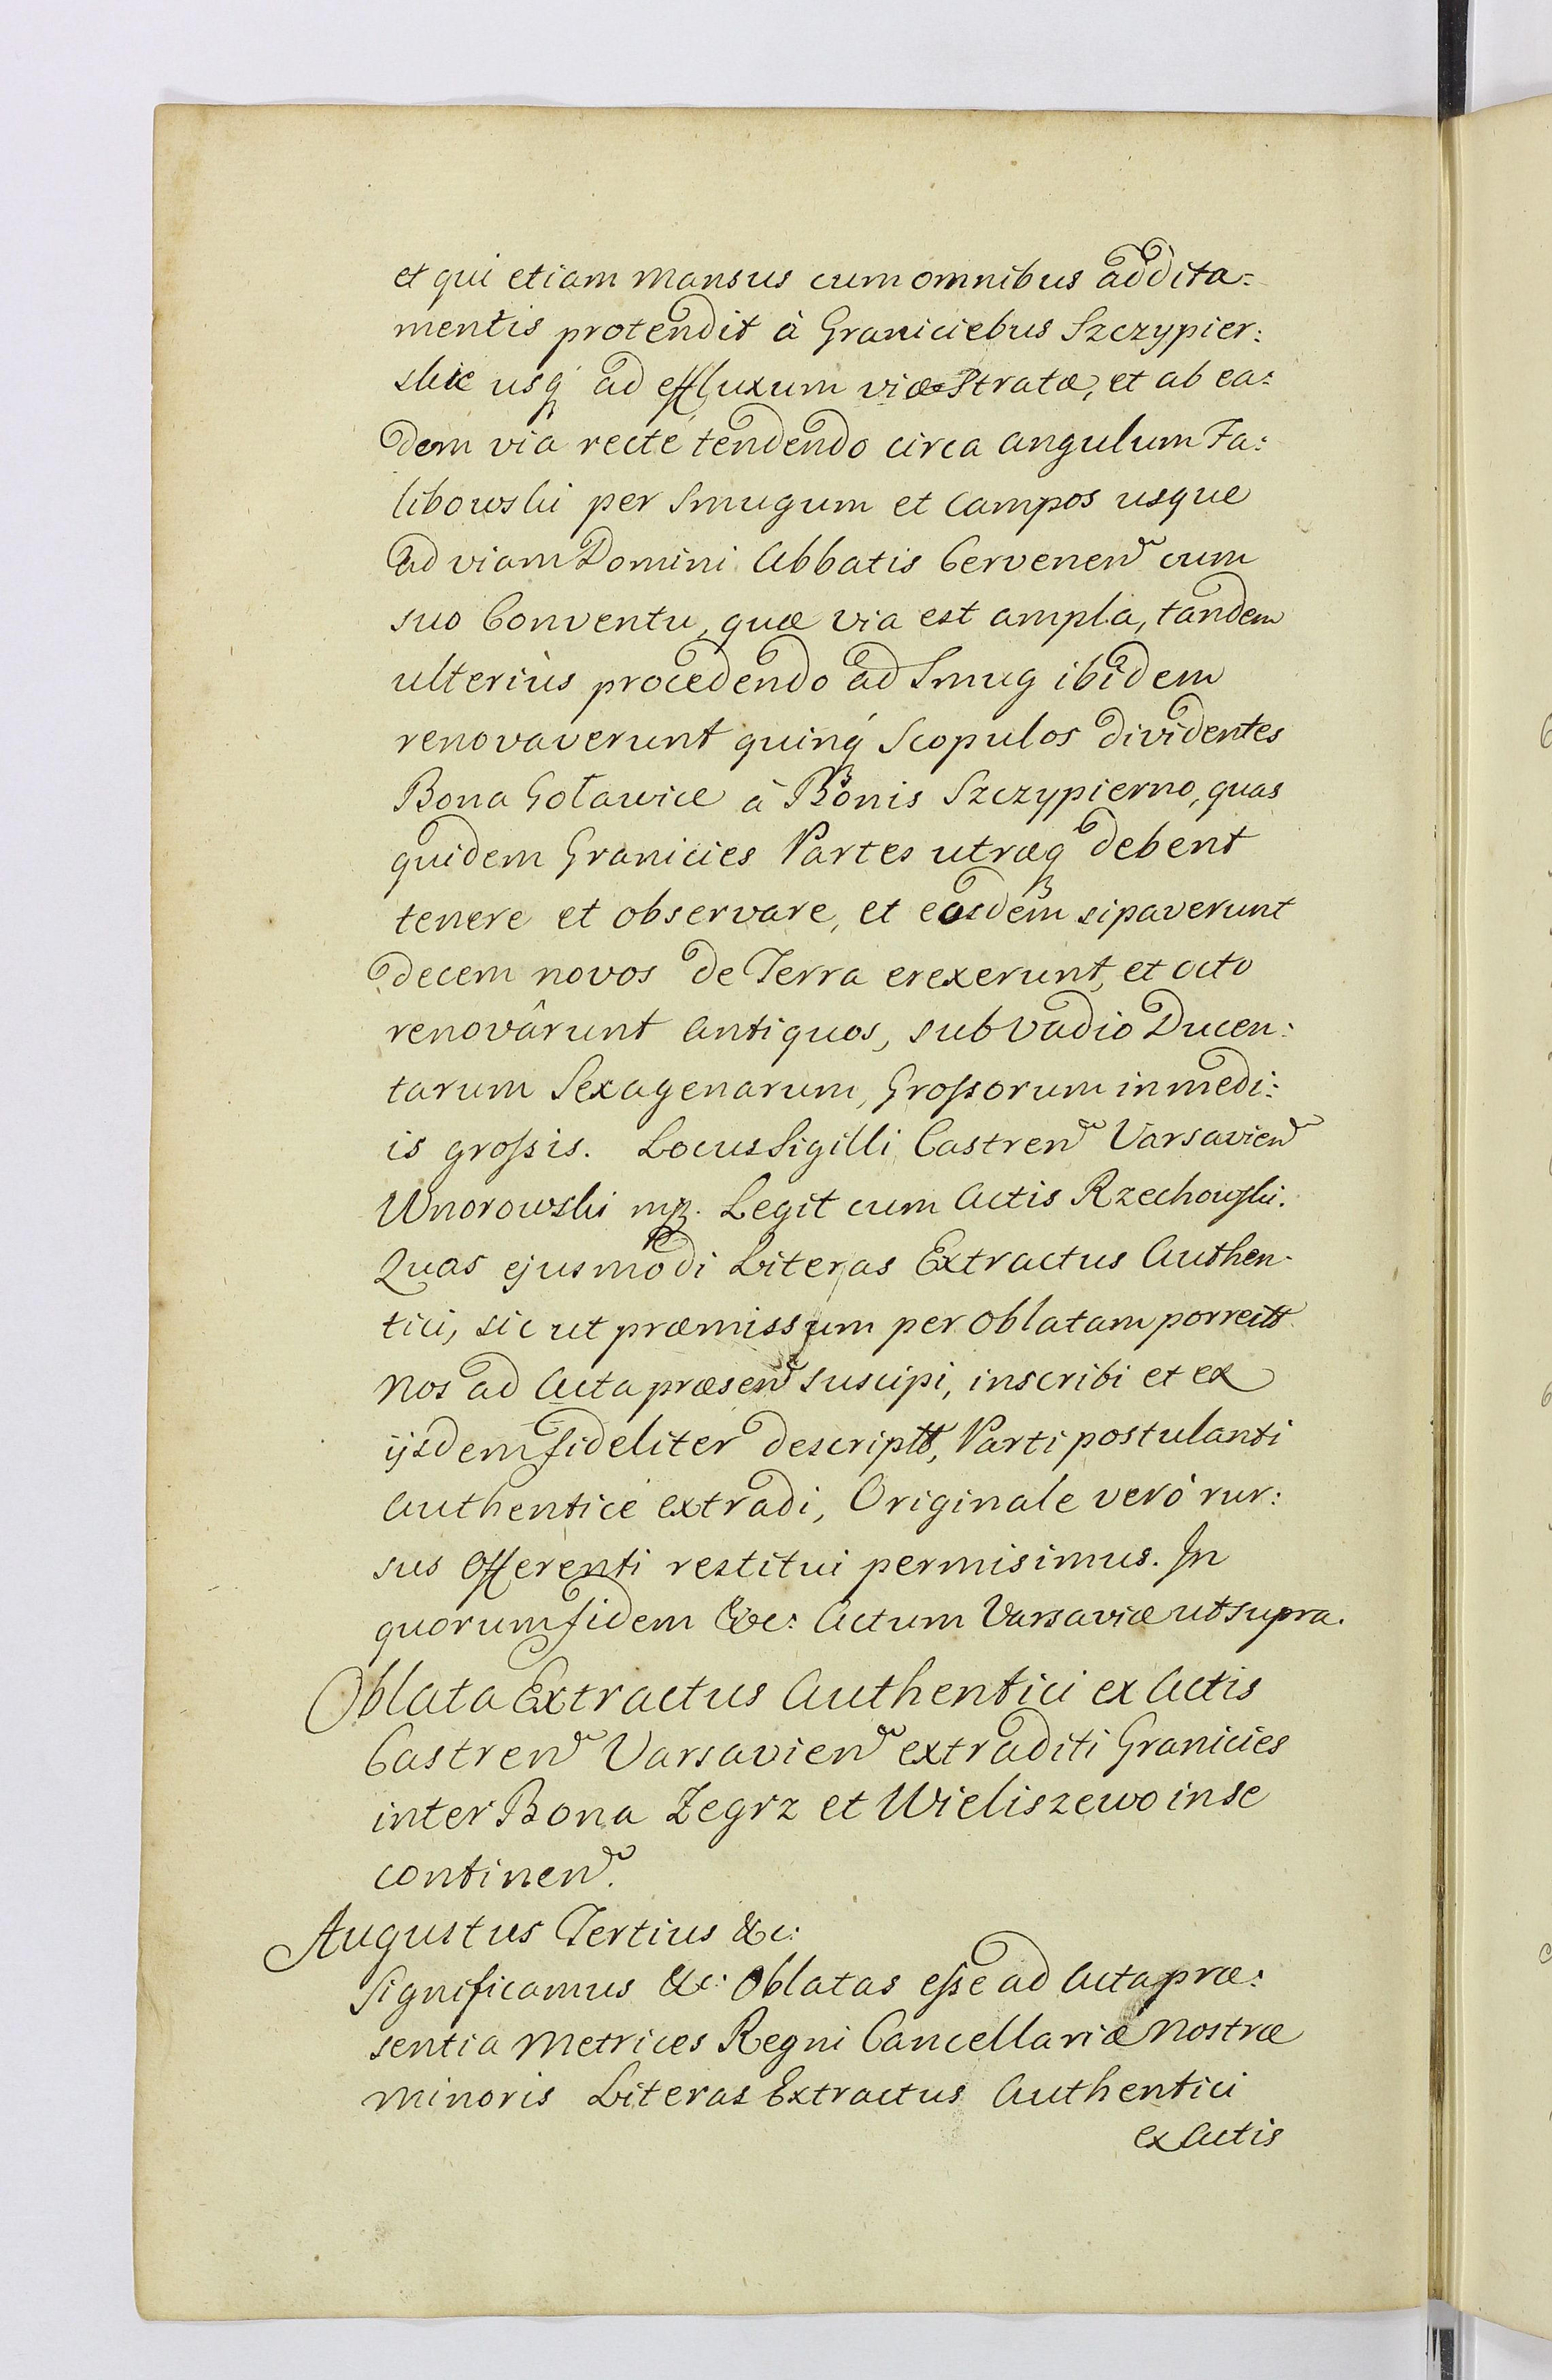 et qui etiam mansus cum omnibus addita:
mentis protendit à Graniciebus Szczypier:
skie usq́ ad effluxum viæ Stratæ, et ab ea:
dem via recté tendendo circa angulum Fa:
libowski per Smugum et campos usque
ad viam Domini Abbatis Cervenen̄ cum
suo Conventu, quæ via est ampla, tandem
ulteriùs procedendo ad Smug ibidem
renovaverunt quinq́ Scopulos dividentes
Bona Gotawice à Bonis Szczypierno, quas
quidem Granicies Partes utræq́ debent
tenere et observare, et easdem sipaverunt
decem novos de Terra erexerunt, et octo
renovârunt antiquos, sub vadio Ducen:
tarum Sexagenarum, Grossorum in medi:
is grossis. Locus Sigilli Castren̄ Varsavien̄
Wnorowski mp. Legit cum Actis Rzechowski.
Quas ejusmodi Literas Extractus Authen-
tici, sic ut præmissum per oblatam porrectt
Nos ad Acta præsen̄ suscipi, inscribi et ex
ijsdem fideliter descriptt, Parti postulanti
authenticé extradi, Originale veró rur:
sus Offerenti restitui permisimus. In
quorum fidem &c: Actum Varsaviæ ut supra.
Oblata Extractus Authentici ex Actis
Castren̄ Varsavien̄ extraditi Granicies
inter Bona Zegrz et Wieliszewo in se
continen̄.
Augustus Tertius &c:
Significamus &c: Oblatas esse ad Acta præ:
sentia Metrices Regni Cancellariæ Nostræ
Minoris Literas Extractus Authentici
ex Actis